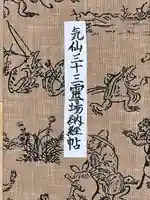 気仙三十三霊場納経帖